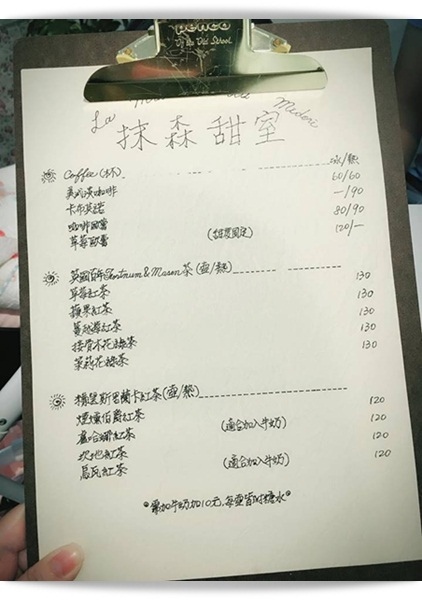 penco
La Midori
抹森甜室
Coffee (杯) 冰/熱
美式黑咖啡 60/60
卡布其諾 —/90
咖啡歐蕾 80/90
草莓歐蕾 (甜度固定) 120/—
英國百年Fortnum & Mason茶(壺/熱)
草莓紅茶 130
蘋果紅茶 130
蔓越莓紅茶 130
接骨木花綠茶 130
茉莉花綠茶 130
斯里蘭卡紅茶(壺/熱)
煙燻伯爵紅茶 120
盧哈娜紅茶 (適合加入牛奶) 120
坎地紅茶 120
烏瓦紅茶 (適合加入牛奶) 120
*需加牛奶加10元,每壺皆附糖水*